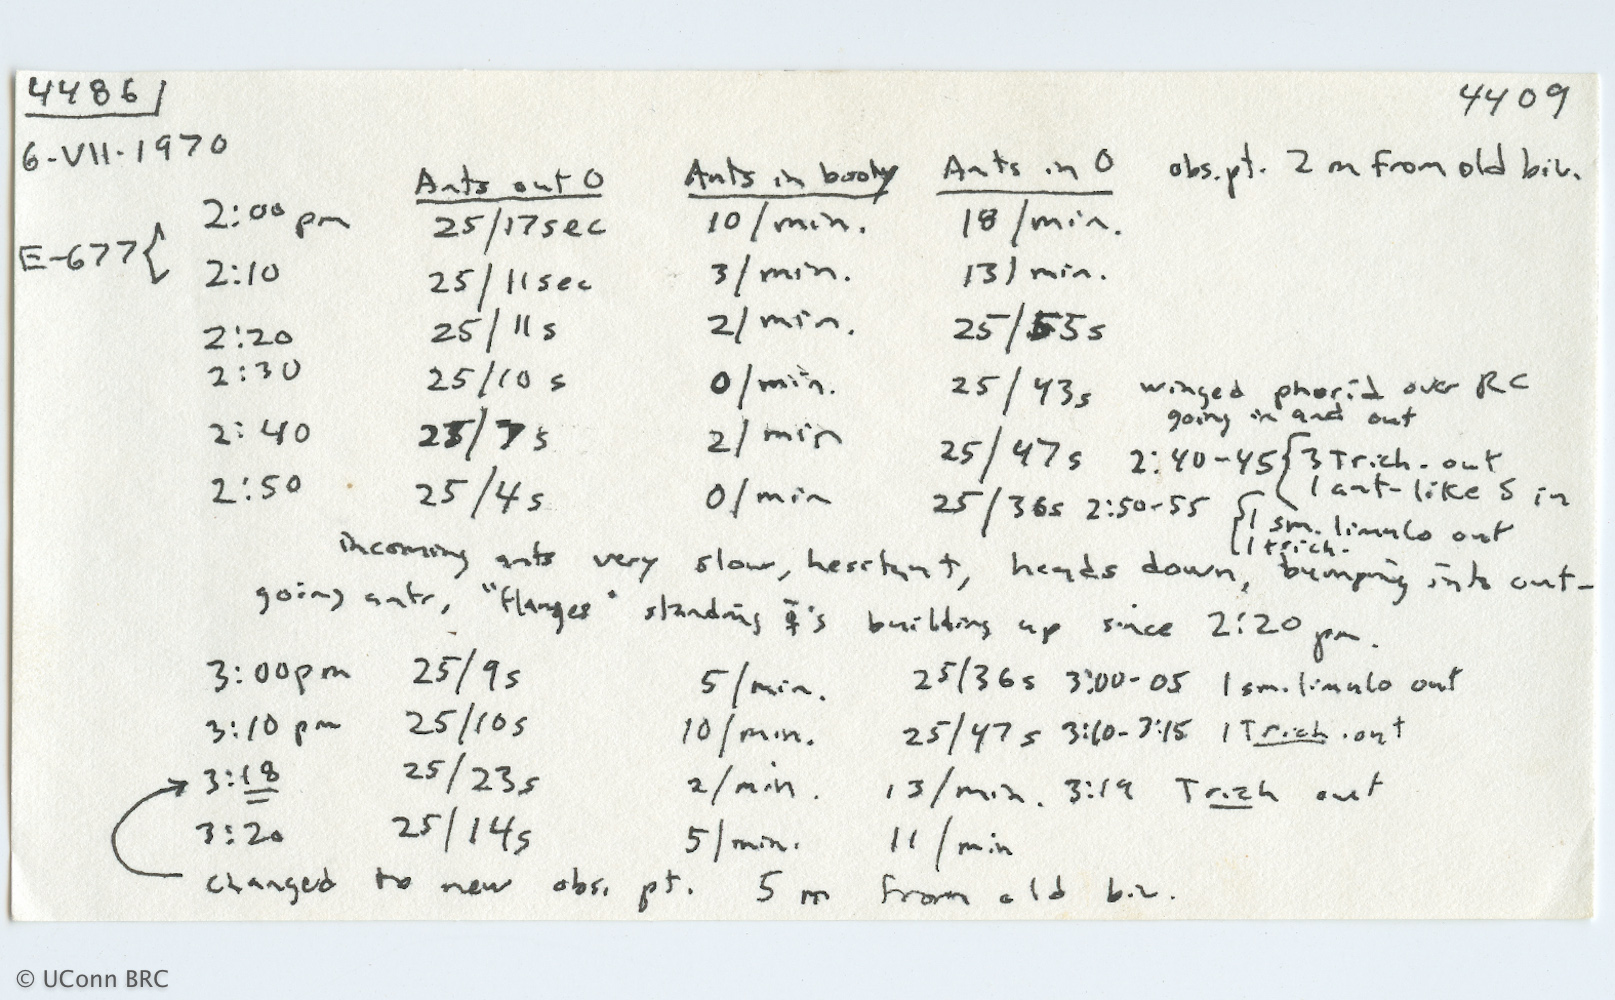 4486 4409
6-VII-1970
Ants out 0 Ants in booty Ants in 0 obs. pt. 2 m from old biv.
2:00 pm 25/17sec 10/min. 18/min.
E-677{
2:10 25/11sec 3/min. 13/min.
2:20 25/11s 2/min. 25/55s
2:30 25/10s 0/min. 25/43s winged phorid over RC
going in and out
2:40 25/7s 2/min 25/47s 2:40-45 {3 Trich. out
1 ant-like S in
2:50 25/4s 0/min 25/36s 2:50-55 {1 sm. limulo out
1 trich.
incoming ants very slow, hesitant, heads down, bumping into out-
going ants, "flanges" standing ☿'s building up since 2:20 pm.
3:00pm 25/9s 5/min. 25/36s 3:00-05 1 sm. limulo out
3:10 pm 25/10s 10/min. 25/47s 3:10-3:15 1 Trich. out
3:18 25/23s 2/min. 13/min. 3:19 Trich out
3:20 25/14s 5/min. 11/min
changed to new obs. pt. 5 m from old biv.
© UConn BRC